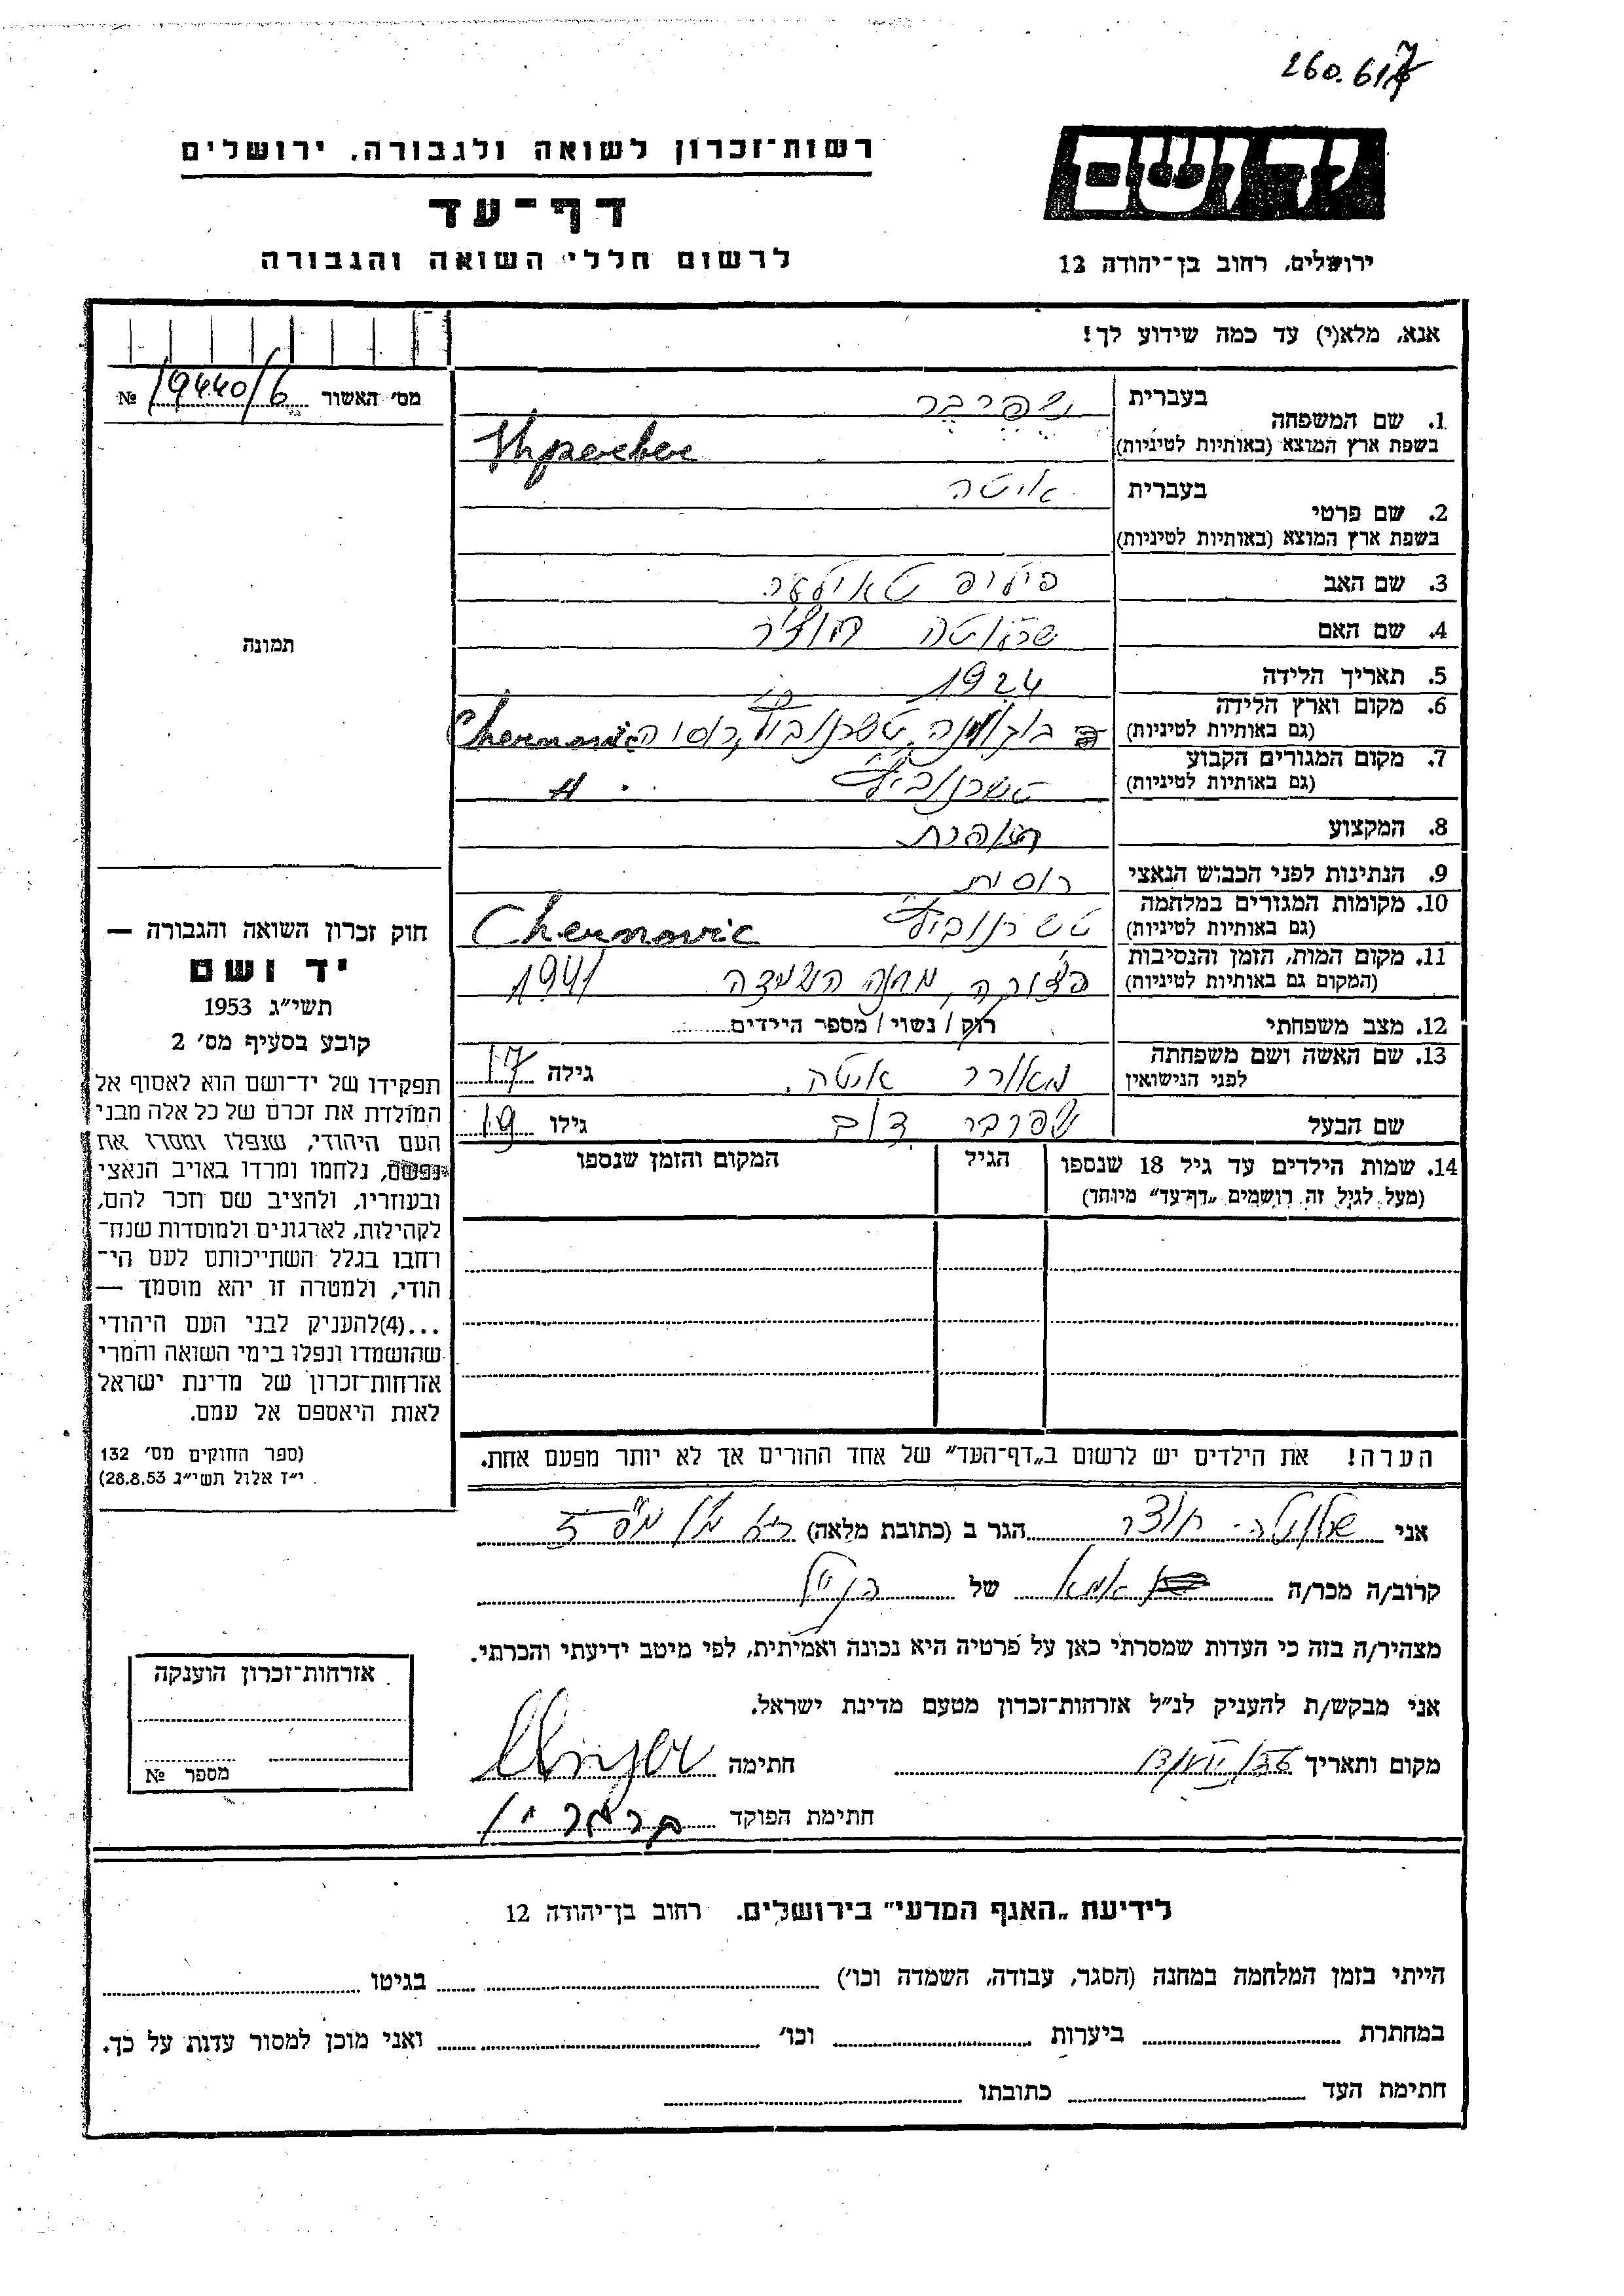 260.617
רשות־זכרון לשואה ולגבורה. ירושלים
דף־עד
לרשום חללי השואה והגבורה
יד ושם
ירושלים, רחוב בן־יהודה 12
אנא, מלא(י) עד כמה שידוע לך!
מס׳ האשור 19440/6 №
1. שם המשפחה
בעברית שפרבר
בשפת ארץ המוצא (באותיות לטיניות)
2. שם פרטי
בעברית איטה
בשפת ארץ המוצא (באותיות לטיניות)
3. שם האב פיליפ
4. שם האם
5. תאריך הלידה 1924
6. מקום וארץ הלידה
(גם באותיות לטיניות)
7. מקום המגורים הקבוע
(גם באותיות לטיניות)
8. המקצוע
9. הנתינות לפני הכבוש הנאצי רוסית
10. מקומות המגורים במלחמה
(גם באותיות לטיניות) Chernovic
11. מקום המות, הזמן והנסיבות
(המקום גם באותיות לטיניות) מחנה השמדה 1941
12. מצב משפחתי רוק / נשוי / מספר הילדים
13. שם האשה ושם משפחתה
לפני הנישואין איטה גילה 17
שם הבעל שפרבר דוב גילו 19
14. שמות הילדים עד גיל 18 שנספו
(מעל לגיל זה רושמים „דף־עד״ מיוחד)
הגיל
המקום והזמן שנספו
הערה! את הילדים יש לרשום ב„דף־העד״ של אחד ההורים אך לא יותר מפעם אחת.
תמונה
חוק זכרון השואה והגבורה —
יד ושם
תשי״ג 1953
קובע בסעיף מס׳ 2
תפקידו של יד־ושם הוא לאסוף אל
המולדת את זכרם של כל אלה מבני
העם היהודי, שנפלו ומסרו את
נפשם, נלחמו ומרדו באויב הנאצי
ובעוזריו, ולהציב שם וזכר להם,
לקהילות, לארגונים ולמוסדות שנח־
רחבו בגלל השתייכותם לעם הי־
הודי, ולמטרה זו יהא מוסמך —
...(4) להעניק לבני העם היהודי
שהושמדו ונפלו בימי השואה והמרי
אזרחות־זכרון של מדינת ישראל
לאות היאספם אל עמם.
(ספר החוקים מס׳ 132
י״ז אלול תשי״ג 28.8.53)
אני הגר ב (כתובת מלאה)
קרוב/ה מכר/ה אמא של הנ״ל
מצהיר/ה בזה כי העדות שמסרתי כאן על פרטיה היא נכונה ואמיתית, לפי מיטב ידיעתי והכרתי.
אני מבקש/ת להעניק לנ״ל אזרחות־זכרון מטעם מדינת ישראל.
מקום ותאריך חתימה
חתימת הפוקד
אזרחות־זכרון הוענקה
מספר №
לידיעת „האגף המדעי״ בירושלים. רחוב בן־יהודה 12
הייתי בזמן המלחמה במחנה (הסגר, עבודה, השמדה וכו׳) בגיטו
במחתרת ביערות וכו׳ ואני מוכן למסור עדות על כך.
חתימת העד כתובתו